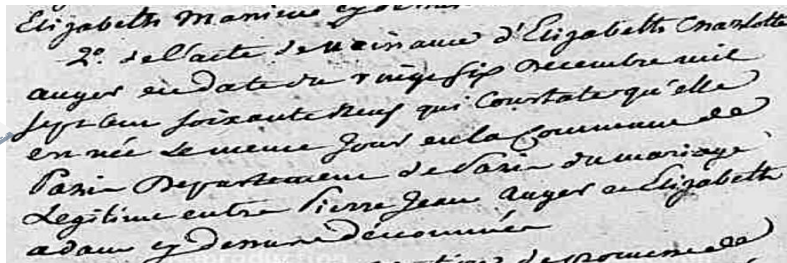 Elizabeth Manieu cy
2º. de l'acte de naissance d'Elizabeth Charlotte
auger en date du vingt six Decembre mil
sept cent soixante neuf qui Constate qu'elle
en née le meme Jour en la Commune de
Paris Departement de Paris du mariage
Legitime entre Pierre Jean auger et Elizabeth
adam cy dessus dénommée
de promesse de